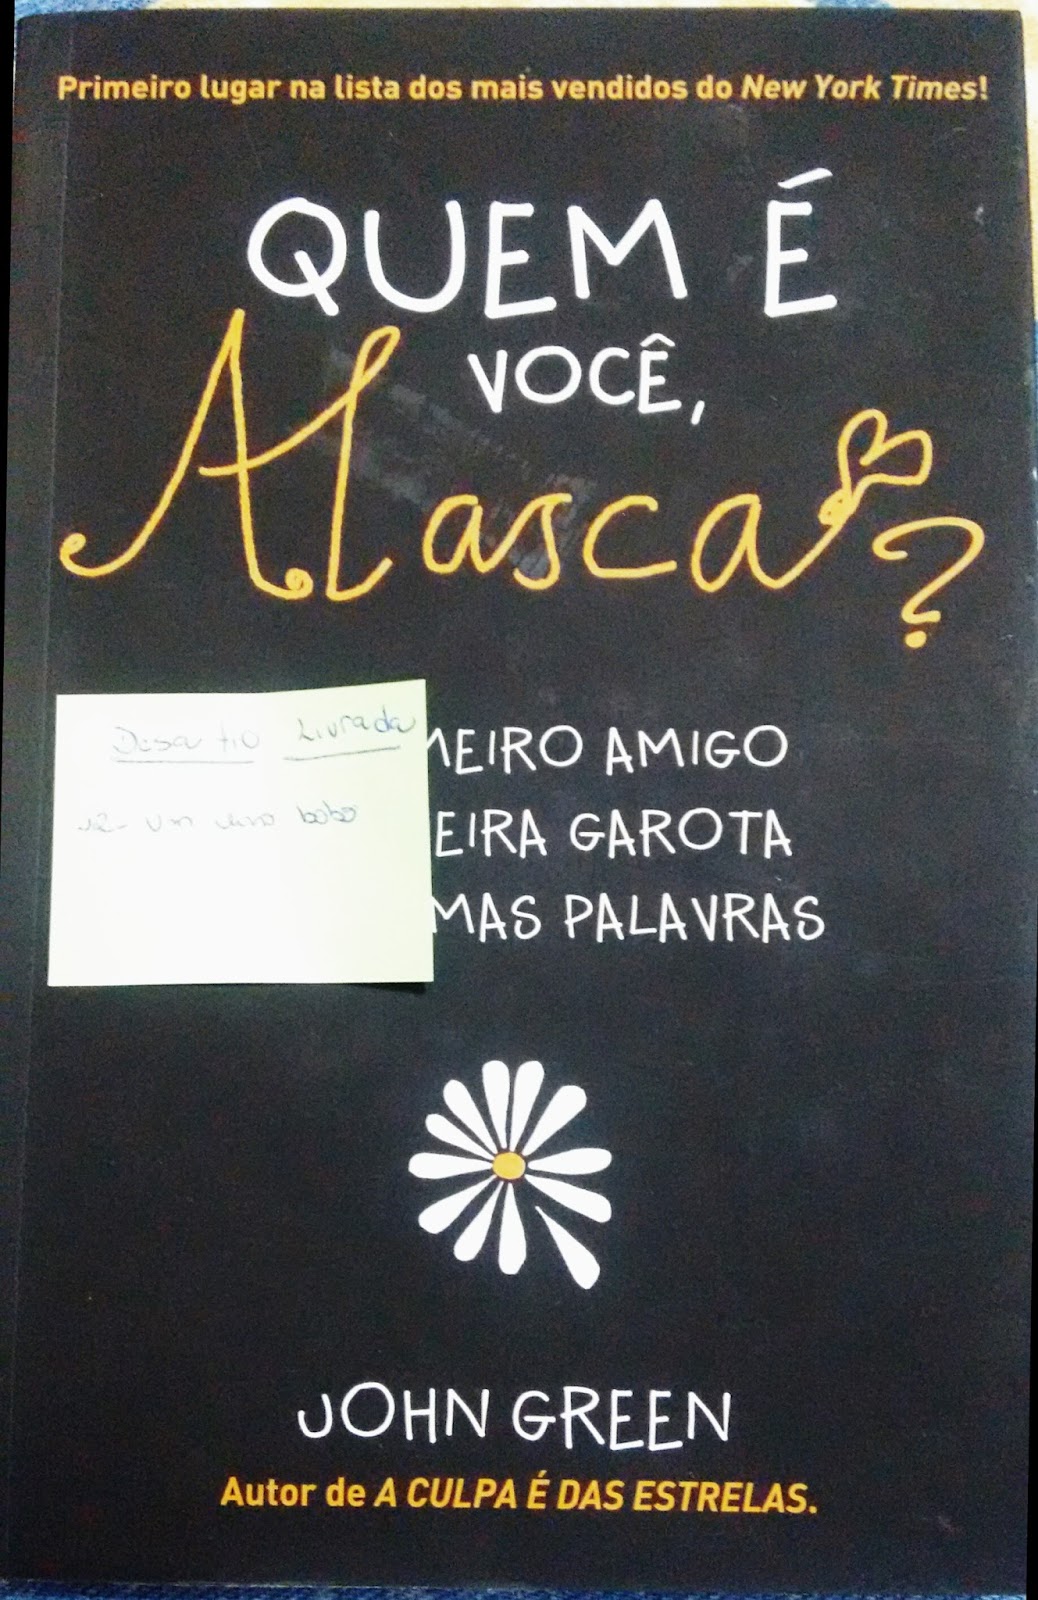 Primeiro lugar na lista dos mais vendidos do New York Times!
QUEM É
VOCÊ,
Alasca?
Desafio Livrada
12- Um livro bobo
MEIRO AMIGO
EIRA GAROTA
MAS PALAVRAS
JOHN GREEN
Autor de A CULPA É DAS ESTRELAS.